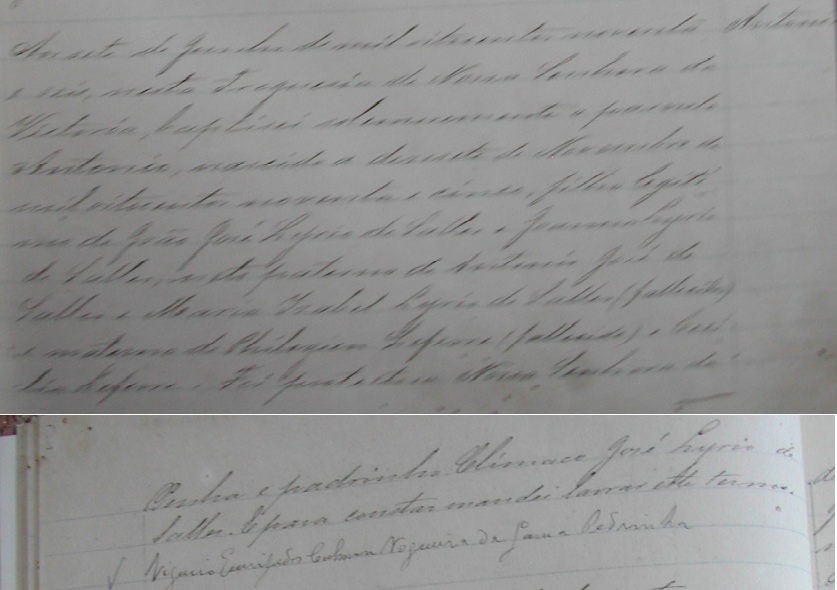 Antonio
Ao sete de Junho de mil oitocentos noventa
e seis, nesta Freguesia de Nossa Senhora da
Victoria, baptisei solemnemente o parvulo
Antonio, nascido a desesete de Novembro de
mil oitocentos noventa e cinco, filho legiti
mo de João José Lyrio de Salles e Joanna Lyrio
de Salles, neto paterno de Antonio José de
Salles e Maria Izabel Lyrio de Salles (fallecidos)
e materno de Philogiam (fallecido) e
Foi protectora Nossa Senhora da
Penha e padrinho Climaco José Lyrio de
Salles. E para constar mandei lavrar este termo.
Vigario Nogueira da Gama Pedrinha